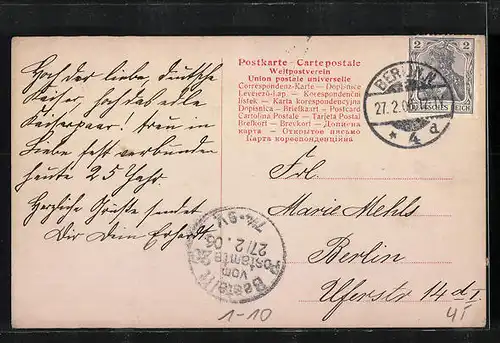 Postkarte - Carte postale
Weltpostverein
Union postale universelle
Correspondenz-Karte — Dopisnice
Levelező-Lap. — Korespondenční
lístek — Karta korespondencyjna
Dopisnica — Briefkaart — Postcard
Cartolina Postale — Tarjeta Postal
Brefkort — Brevkort — Дописна
карта — Открытое письмо
Карта кореспонденційна
2 2
DEUTSCHES REICH
BERLIN N.
27.2.06
* 4 a
Hoch der liebe, deutsche
Kaiser, hoch das edle
Kaiserpaar! treu in
Liebe fest verbunden
heute 25 Jahr.
Herzliche Grüße sendet
Dir Dein Erhardt.
Frl.
Marie Mehls
Berlin
Uferstr 14 d I.
Bestellt
vom
Postamte
27/2.06
1-10